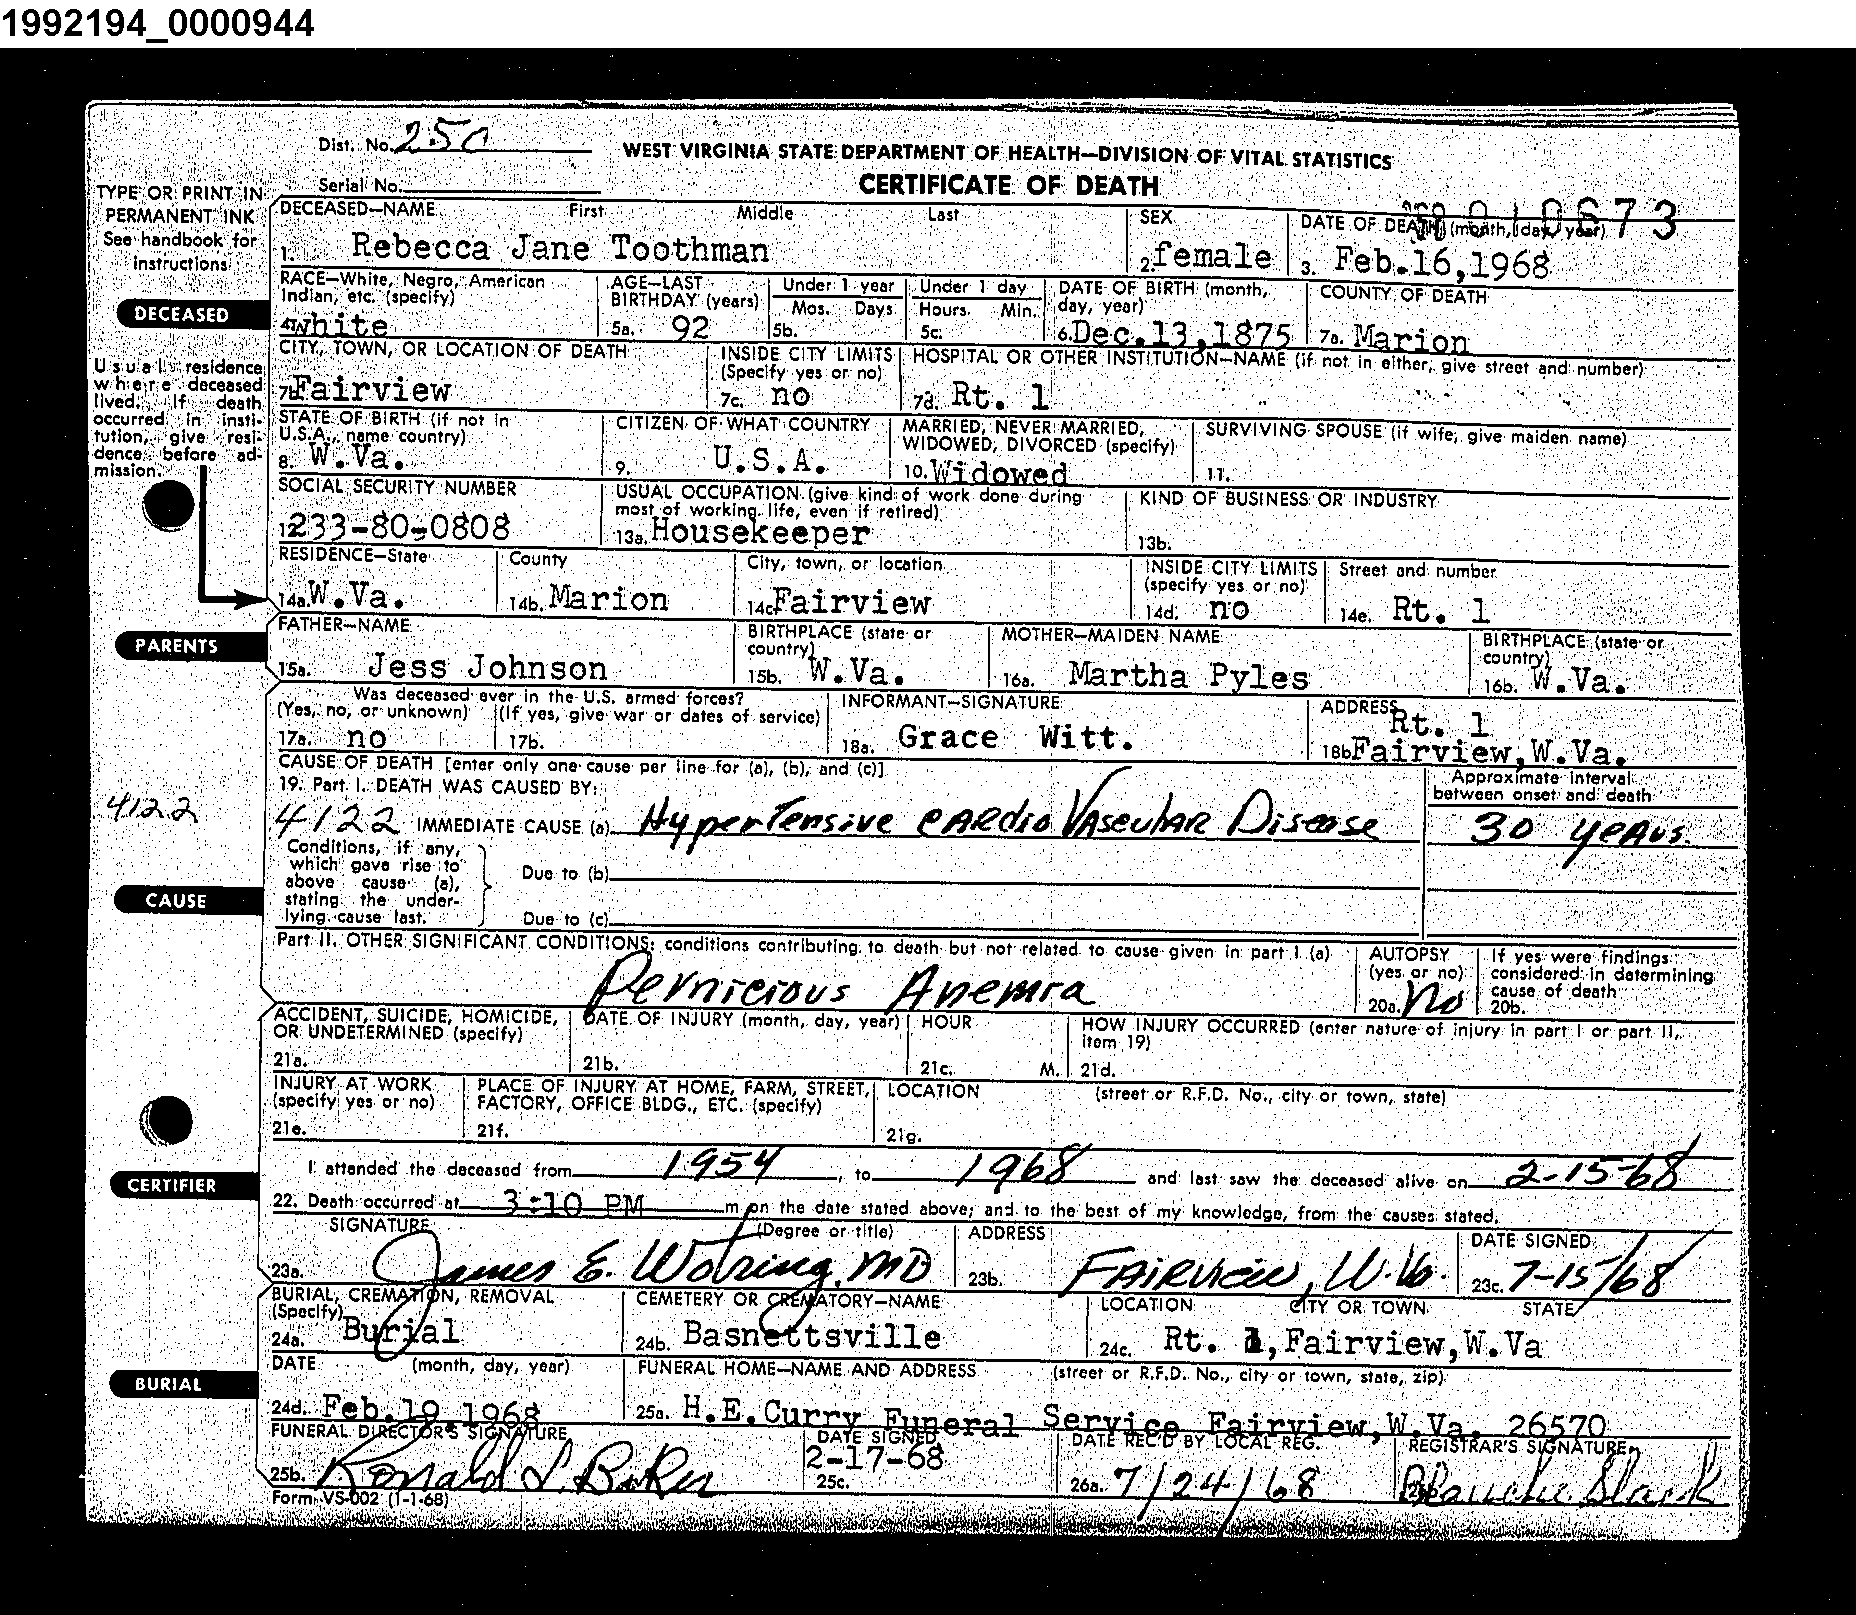 1992194_0000944
Dist. No. 250
WEST VIRGINIA STATE DEPARTMENT OF HEALTH—DIVISION OF VITAL STATISTICS
Serial No.
CERTIFICATE OF DEATH
TYPE OR PRINT IN PERMANENT INK
See handbook for instructions
DECEASED—NAME First Middle Last
1. Rebecca Jane Toothman
SEX
2. female
DATE OF DEATH (month, day, year)
3. Feb.16,1968
RACE—White, Negro, American Indian, etc. (specify)
4. white
AGE—LAST BIRTHDAY (years)
5a. 92
Under 1 year
Mos. Days
5b.
Under 1 day
Hours Min.
5c.
DATE OF BIRTH (month, day, year)
6. Dec.13,1875
COUNTY OF DEATH
7a. Marion
DECEASED
CITY, TOWN, OR LOCATION OF DEATH
Fairview
INSIDE CITY LIMITS (Specify yes or no)
7c. no
HOSPITAL OR OTHER INSTITUTION—NAME (if not in either, give street and number)
7d. Rt. 1
Usual residence where deceased lived. If death occurred in institution, give residence before admission.
STATE OF BIRTH (if not in U.S.A., name country)
8. W.Va.
CITIZEN OF WHAT COUNTRY
9. U.S.A.
MARRIED, NEVER MARRIED, WIDOWED, DIVORCED (specify)
10. Widowed
SURVIVING SPOUSE (if wife, give maiden name)
11.
SOCIAL SECURITY NUMBER
12. 233-80-0808
USUAL OCCUPATION (give kind of work done during most of working life, even if retired)
13a. Housekeeper
KIND OF BUSINESS OR INDUSTRY
13b.
RESIDENCE—State
14a. W.Va.
County
14b. Marion
City, town, or location
14c. Fairview
INSIDE CITY LIMITS (specify yes or no)
14d. no
Street and number
14e. Rt. 1
PARENTS
FATHER—NAME
15a. Jess Johnson
BIRTHPLACE (state or country)
15b. W.Va.
MOTHER—MAIDEN NAME
16a. Martha Pyles
BIRTHPLACE (state or country)
16b. W.Va.
Was deceased ever in the U.S. armed forces?
(Yes, no, or unknown) (If yes, give war or dates of service)
17a. no 17b.
INFORMANT—SIGNATURE
18a. Grace Witt.
ADDRESS
Rt. 1
18b. Fairview,W.Va.
CAUSE OF DEATH [enter only one cause per line for (a), (b), and (c)]
19. Part I. DEATH WAS CAUSED BY:
Approximate interval between onset and death
4122
4122 IMMEDIATE CAUSE (a) Hypertensive Cardio Vascular Disease 30 years.
Conditions, if any, which gave rise to above cause (a), stating the underlying cause last.
Due to (b)
Due to (c)
CAUSE
Part II. OTHER SIGNIFICANT CONDITIONS: conditions contributing to death but not related to cause given in part I (a)
Pernicious Anemia
AUTOPSY (yes or no)
20a. No
If yes were findings considered in determining cause of death
20b.
ACCIDENT, SUICIDE, HOMICIDE, OR UNDETERMINED (specify)
21a.
DATE OF INJURY (month, day, year)
21b.
HOUR
21c. M.
HOW INJURY OCCURRED (enter nature of injury in part I or part II, item 19)
21d.
INJURY AT WORK (specify yes or no)
21e.
PLACE OF INJURY AT HOME, FARM, STREET, FACTORY, OFFICE BLDG., ETC. (specify)
21f.
LOCATION (street or R.F.D. No., city or town, state)
21g.
CERTIFIER
I attended the deceased from 1954, to 1968 and last saw the deceased alive on 2-15-68
22. Death occurred at 3:10 PM m on the date stated above; and to the best of my knowledge, from the causes stated.
SIGNATURE (Degree or title)
23a. James E. Wotring, MD
ADDRESS
23b. Fairview, W.Va.
DATE SIGNED
23c. 7-15/68
BURIAL, CREMATION, REMOVAL (Specify)
24a. Burial
CEMETERY OR CREMATORY—NAME
24b. Basnettsville
LOCATION CITY OR TOWN STATE
24c. Rt. 1,Fairview,W.Va
BURIAL
DATE (month, day, year)
24d. Feb.19,1968
FUNERAL HOME—NAME AND ADDRESS (street or R.F.D. No., city or town, state, zip)
25a. H.E.Curry Funeral Service Fairview,W.Va. 26570
FUNERAL DIRECTOR'S SIGNATURE
25b. Ronald L. Baker
DATE SIGNED
2-17-68
25c.
DATE REC'D BY LOCAL REG.
26a. 7/24/68
REGISTRAR'S SIGNATURE
Blanche Slack
Form VS-002 (1-1-68)